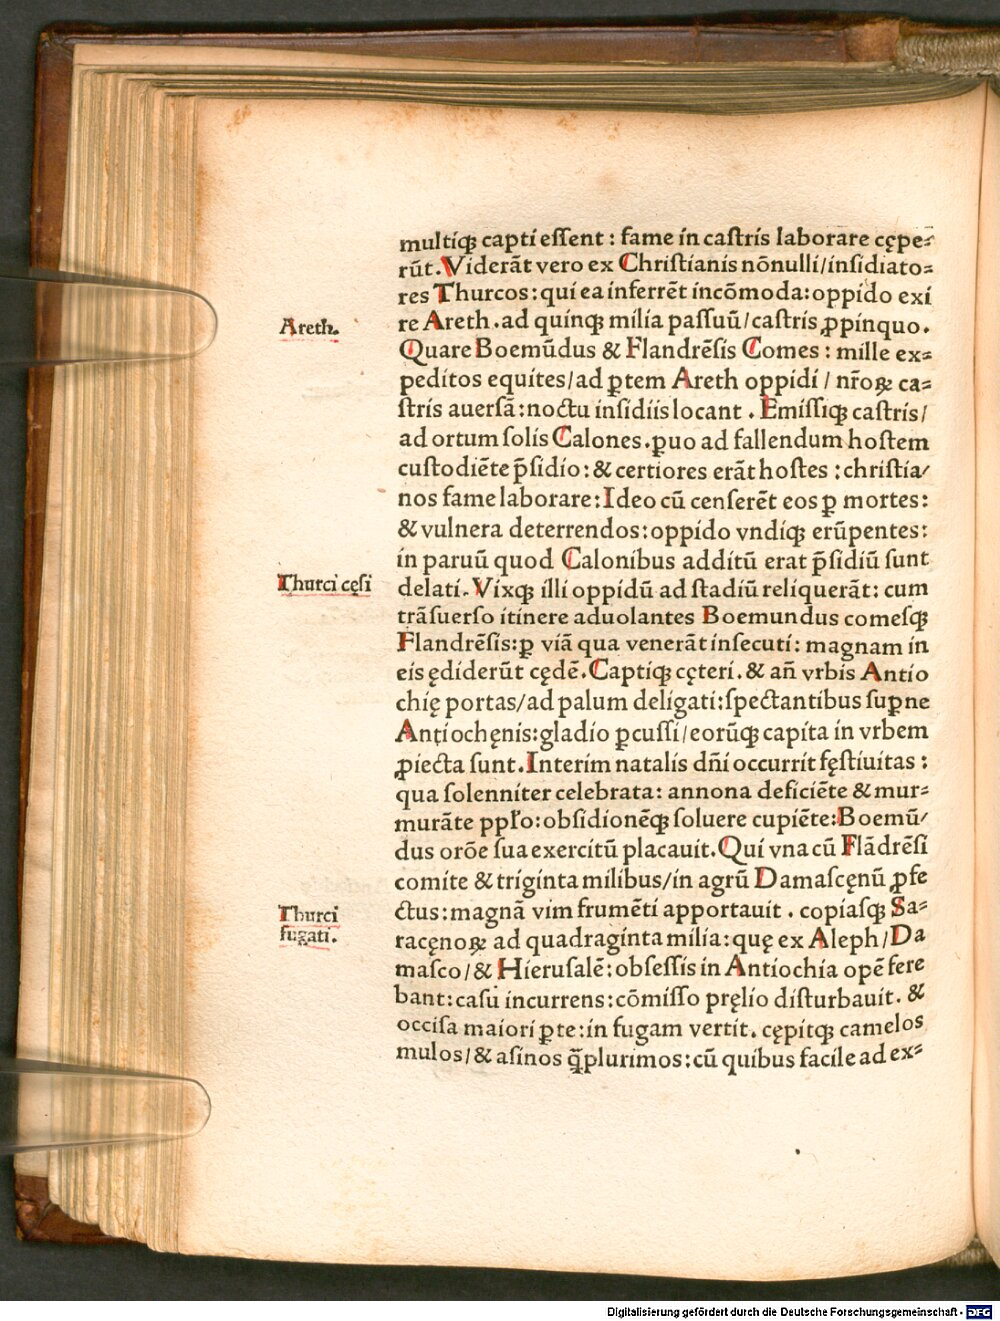 multiqꝫ capti eſſent : fame in caſtris laborare cępe⸗
rūt. Viderāt vero ex Chriſtianis nōnulli/inſidiato⸗
res Thurcos: qui ea inferrēt incōmoda: oppido exi
Areth.
re Areth. ad quinqꝫ milia paſſuū/caſtris ꝓpinquo.
Quare Boemūdus & Flandrēſis Comes : mille ex⸗
peditos equites/ad ꝑtem Areth oppidi / nr̄oꝝ ca⸗
ſtris auerſā: noctu inſidiis locant . Emiſſiqꝫ caſtris/
ad ortum ſolis Calones. ꝑuo ad fallendum hoſtem
cuſtodiēte p̄ſidio: & certiores erāt hoſtes : chriſtia/
nos fame laborare: Ideo cū cenſerēt eos ꝑ mortes:
& vulnera deterrendos: oppido vndiqꝫ erūpentes:
in paruū quod Calonibus additū erat p̄ſidiū ſunt
Thurci cęſi
delati. Vixqꝫ illi oppidū ad ſtadiū reliquerāt: cum
trāſuerſo itinere aduolantes Boemundus comeſqꝫ
Flandrēſis: ꝑ viā qua venerāt inſecuti: magnam in
eis ędiderūt cędē. Captiqꝫ cęteri. & an̄ vrbis Antio
chię portas/ad palum deligati: ſpectantibus ſuꝑne
Antiochęnis: gladio ꝑcuſſi/eorūqꝫ capita in vrbem
ꝓiecta ſunt. Interim natalis dn̄i occurrit fęſtiuitas :
qua ſolenniter celebrata: annona deficiēte & mur⸗
murāte ppl̄o: obſidionēqꝫ ſoluere cupiēte: Boemū/
dus orōe ſua exercitū placauit. Qui vna cū Flādrēſi
comite & triginta milibus/in agrū Damaſcęnū ꝓfe
Thurci
ctus: magnā vim frumēti apportauit . copiaſqꝫ Sa⸗
fugati.
racęnoꝝ ad quadraginta milia: quę ex Aleph/Da
maſco/& Hieruſalē: obſeſſis in Antiochia opē fere
bant: caſu incurrens: cōmiſſo pręlio diſturbauit. &
occiſa maiori ꝑte: in fugam vertit. cępitqꝫ camelos
mulos/& aſinos q̄plurimos: cū quibus facile ad ex⸗
Digitalisierung gefördert durch die Deutsche Forschungsgemeinschaft - DFG